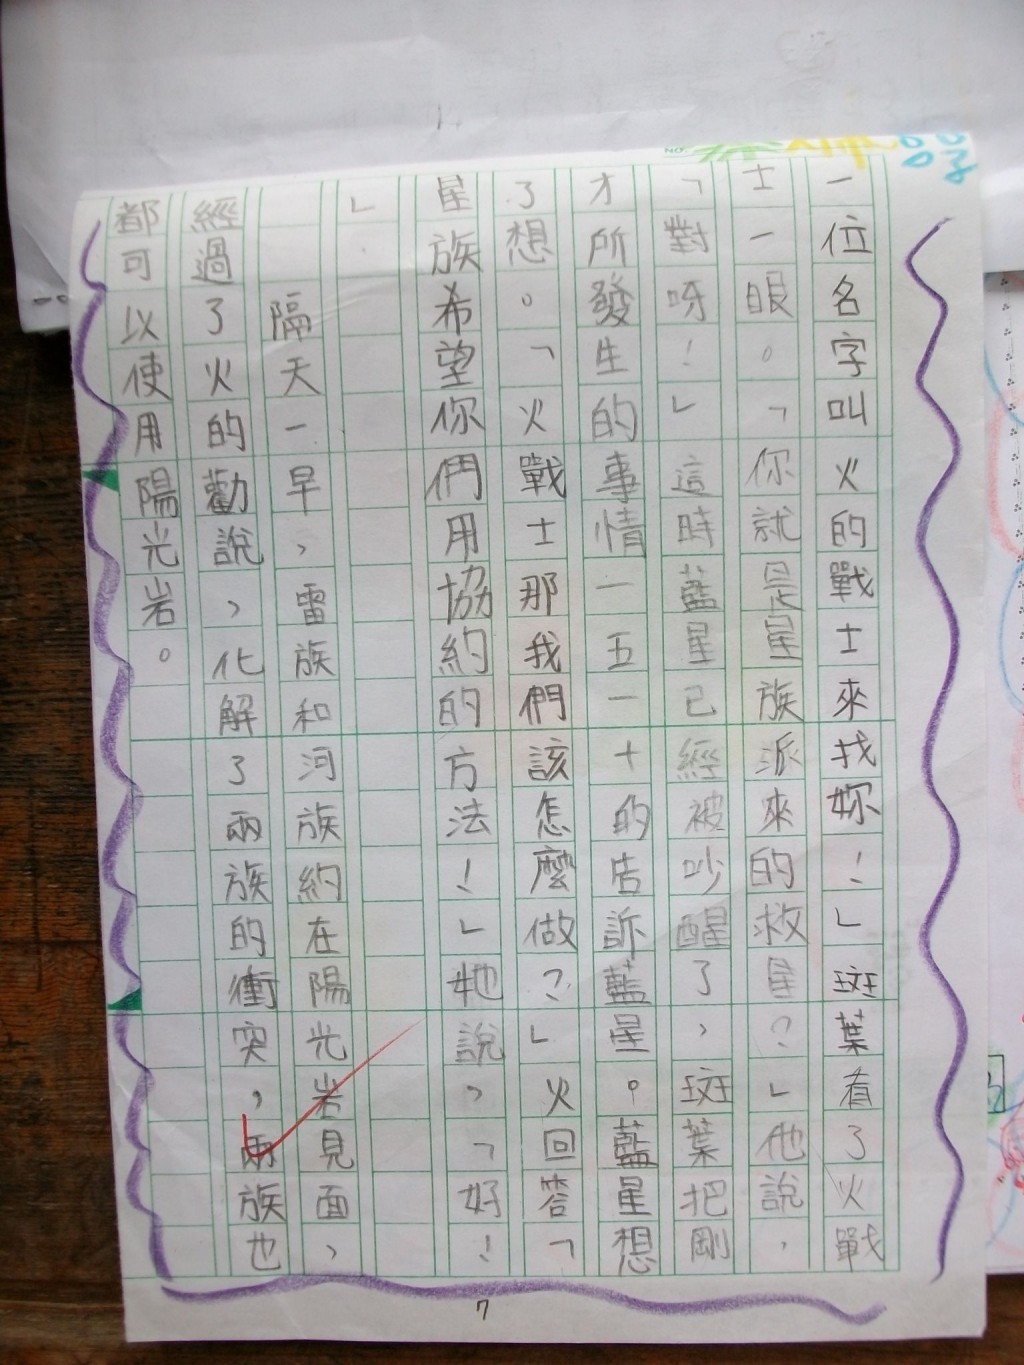 一位名字叫火的戰士來找妳！」斑葉有了火戰
士一眼。「你就是星族派來的救星？」他說，
「對呀！」這時藍星已經被吵醒了，斑葉把剛
才所發生的事情一五一十的告訴藍星。藍星想
了想。「火戰士那我們該怎麼做？」火回答「
星族希望你們用協約的方法！」牠說，「好！
」
隔天一早，雷族和河族約在陽光岩見面，
經過了火的勸說，化解了兩族的衝突，兩族也
都可以使用陽光岩。
7